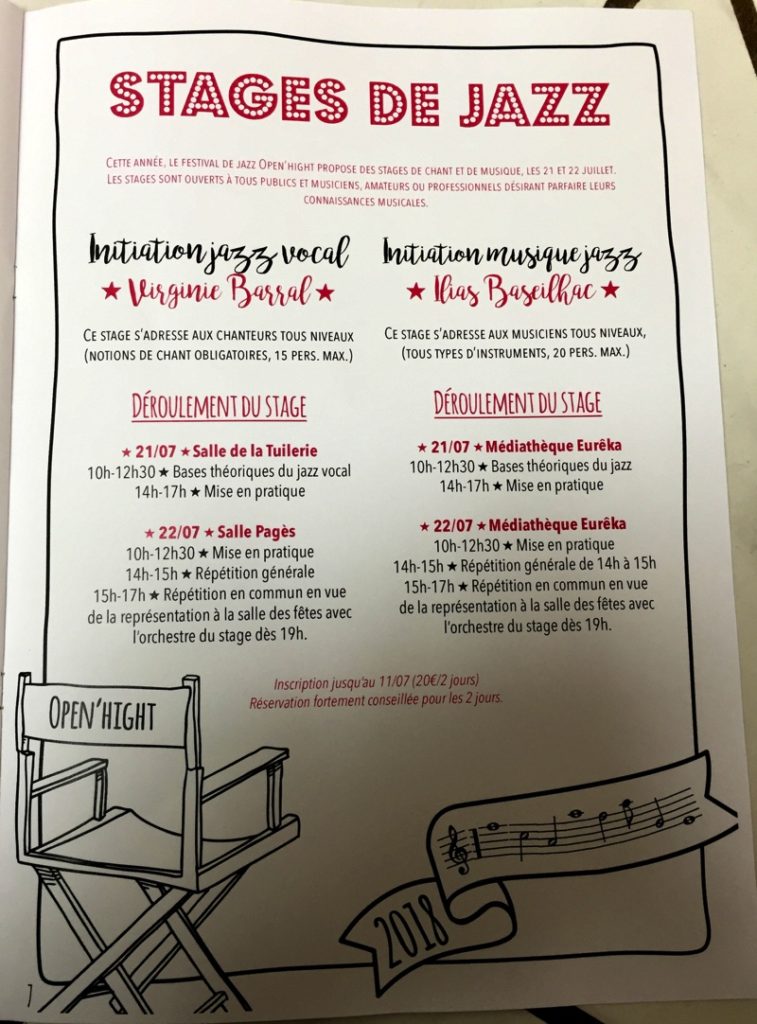 STAGES DE JAZZ
Cette année, le festival de jazz Open'hight propose des stages de chant et de musique, les 21 et 22 juillet.
Les stages sont ouverts à tous publics et musiciens, amateurs ou professionnels désirant parfaire leurs
connaissances musicales.
Initiation jazz vocal
★ Virginie Barral ★
Ce stage s'adresse aux chanteurs tous niveaux
(notions de chant obligatoires, 15 pers. max.)
Déroulement du stage
★ 21/07 ★ Salle de la Tuilerie
10h-12h30 ★ Bases théoriques du jazz vocal
14h-17h ★ Mise en pratique
★ 22/07 ★ Salle Pagès
10h-12h30 ★ Mise en pratique
14h-15h ★ Répétition générale
15h-17h ★ Répétition en commun en vue
de la représentation à la salle des fêtes avec
l'orchestre du stage dès 19h.
Initiation musique jazz
★ Ilias Baseilhac ★
Ce stage s'adresse aux musiciens tous niveaux,
(tous types d'instruments, 20 pers. max.)
Déroulement du stage
★ 21/07 ★ Médiathèque Eurêka
10h-12h30 ★ Bases théoriques du jazz
14h-17h ★ Mise en pratique
★ 22/07 ★ Médiathèque Eurêka
10h-12h30 ★ Mise en pratique
14h-15h ★ Répétition générale de 14h à 15h
15h-17h ★ Répétition en commun en vue
de la représentation à la salle des fêtes avec
l'orchestre du stage dès 19h.
Inscription jusqu'au 11/07 (20€/2 jours)
Réservation fortement conseillée pour les 2 jours.
OPEN'HIGHT
2018
7